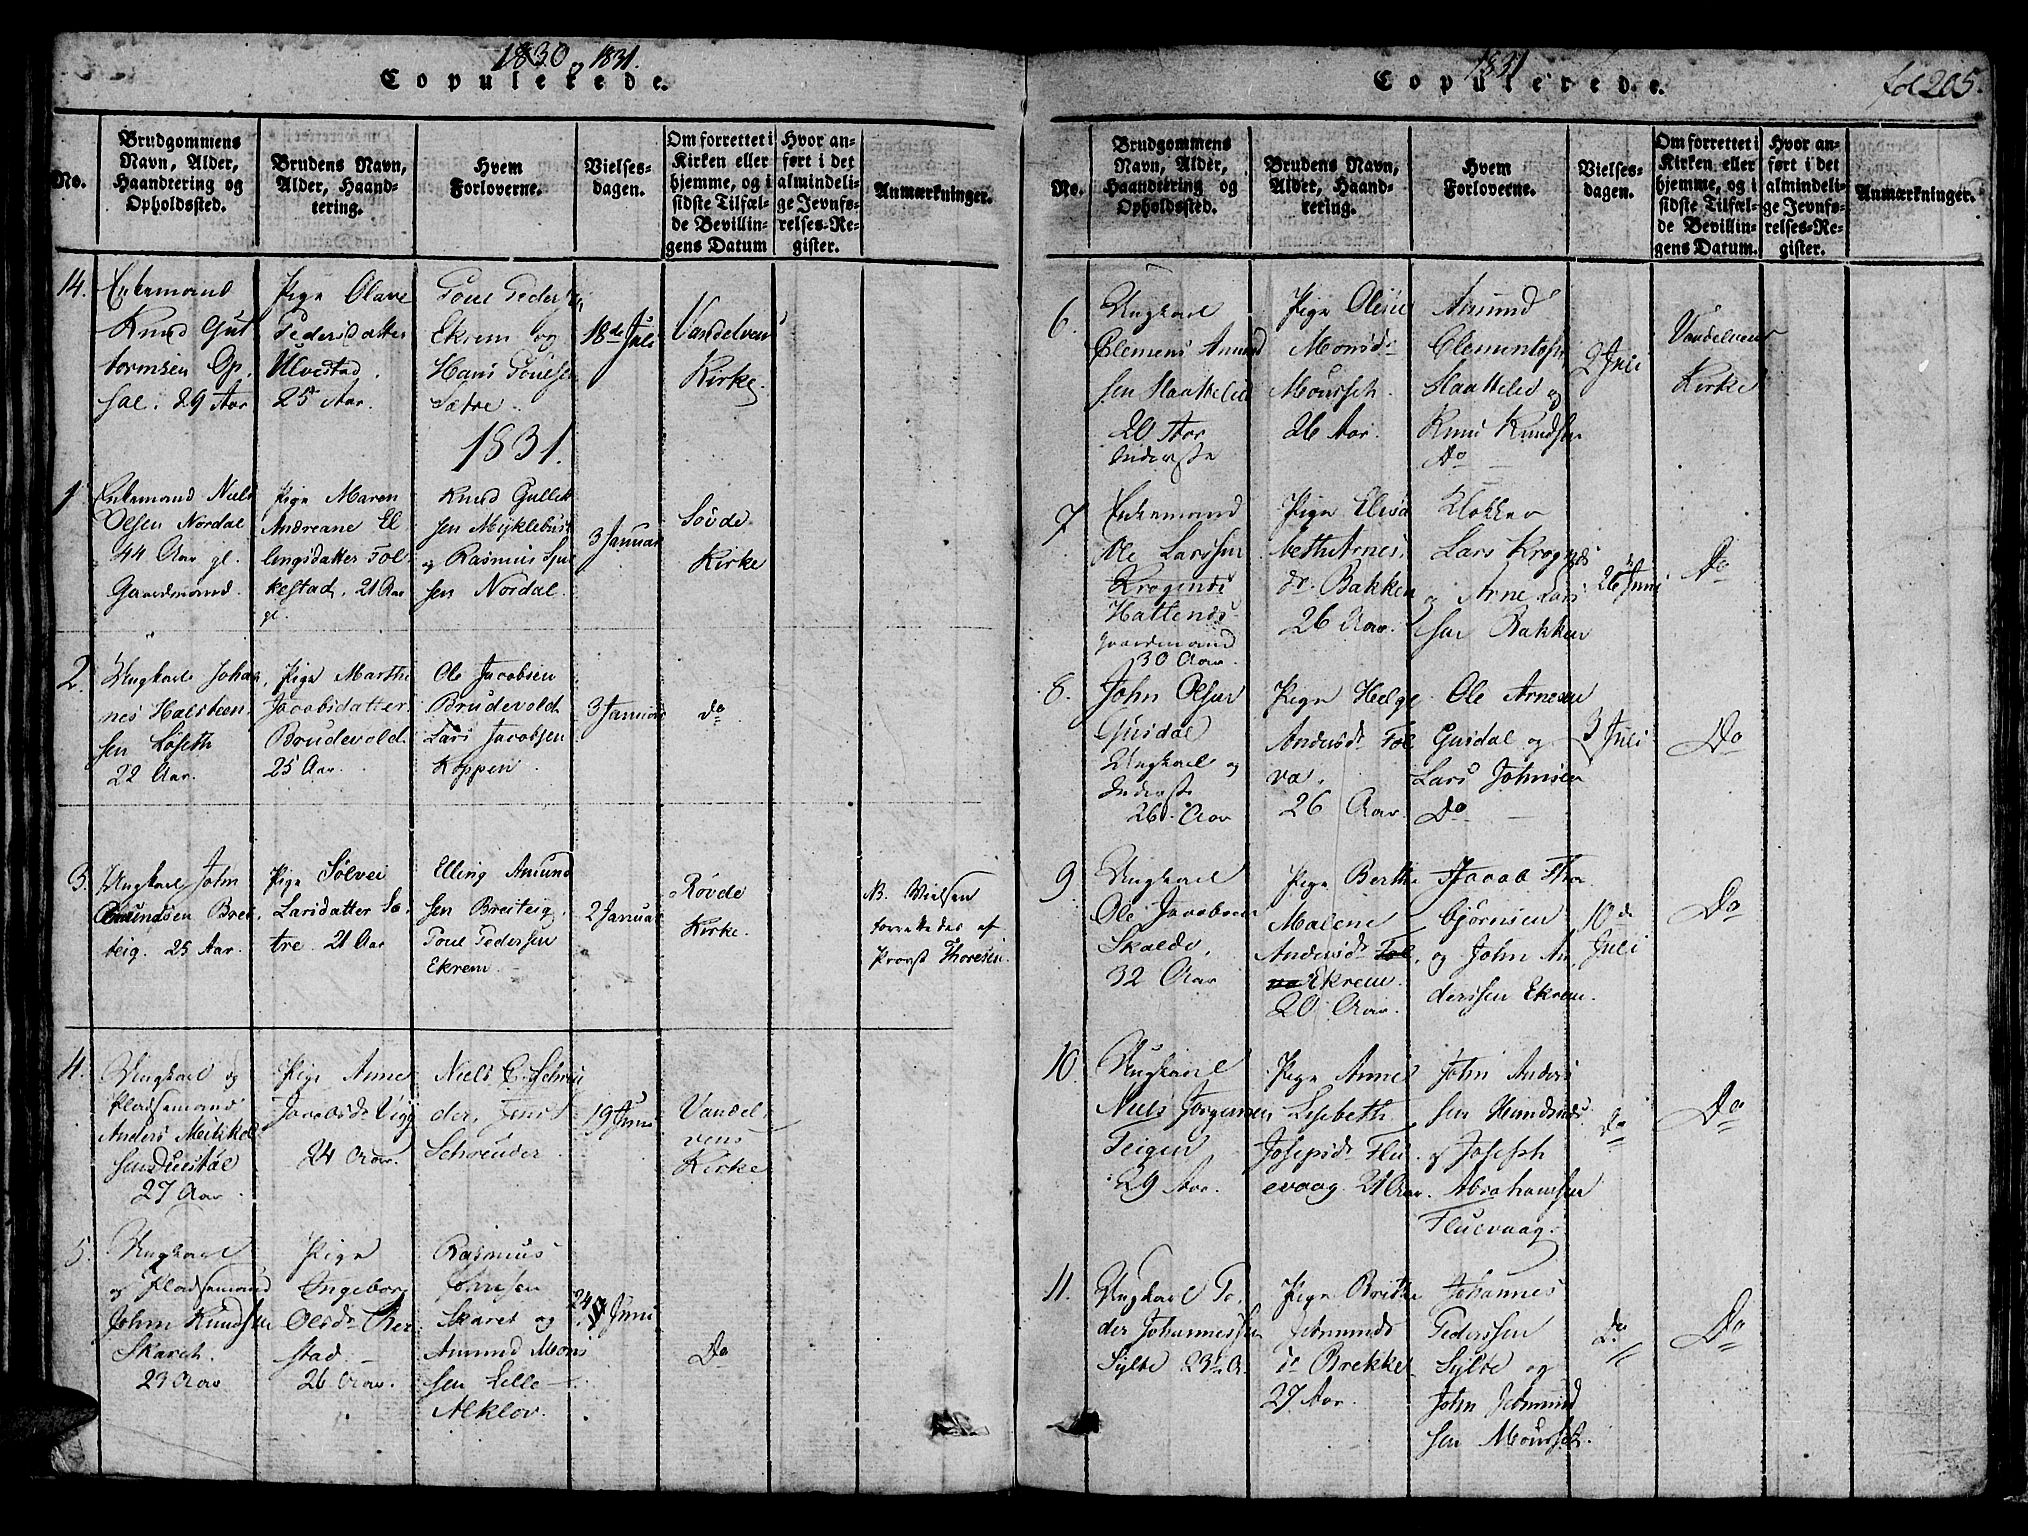 1830 og 1831.
Copulerede.
No.
Brudgommens
Navn, Alder,
Haandtering og
Opholdssted.
Brudens Navn,
Alder, Haand-
tering.
Hvem
Forloverne.
Vielses-
dagen.
Om forrettet i
Kirken eller
hjemme, og i
sidste Tilfæl-
de Bevillin-
gens Datum
Hvor an-
ført i det
almindeli-
ge Jevnfø-
relses-Re-
gister.
Anmærkninger.
14.
Enkemand
Knud Gut
tormsen Op-
sal. 29 Aar
Pige Olave
Pedersdatter
Ulvestad.
25 Aar.
Poul Peders
Ekrem og
Hans Poulsen
Sætre.
18de Juli
Vandelvens
Kirke.
1831.
1
Enkemand Niels
Olsen Nordal
44 Aar gl.
Gaardmand.
Pige Maren
Andreane El
lingsdatter Fol
kestad. 21 Aar
gl.
Knud Gullik
sen Myklebust
og Rasmus
sen Nordal.
3 Januar
Søvde
Kirke
2.
Ungkarl Johan
nes Halsteen
sen Løseth
22 Aar.
Pige Marthe
Jacobsdatter
Brudevold.
25 Aar.
Ole Jacobsen
Brudevold
Lars Jacobsen
Koppen.
3 Januar
do
3.
Ungkarl John
Amundsen Brei
teig. 25 Aar.
Pige Sølvei
Larsdatter Sæ
tre 21 Aar
Elling Amund
sen Breiteig.
Poul Pedersen
Ekrem.
2 Januar
Røvde
Kirke.
NB. Vielsen
forrettedes af
Provst Thoresen.
4.
Ungkarl og
Pladsemand
Anders
27 Aar.
Pige Anne
Jacobsdr
24 Aar.
Niels C. Schreu
der, Jens
Schreuder.
19 Juni
Vandel
vens
Kirke
5.
Ungkarl
og Pladsemand
John Knudsen
Skaret.
23 Aar
Pige
Ingeborg
Olsdr
stad
26 Aar.
Rasmus
Johnsen
Skaret og
Amund Mons
sen Lille-
Aklov.
24 Juni
Do
1831
Copulerede.
fol 205.
No.
Brudgommens
Navn, Alder,
Haandtering og
Opholdssted.
Brudens Navn,
Alder, Haand-
tering.
Hvem
Forloverne.
Vielses-
dagen.
Om forrettet i
Kirken eller
hjemme, og i
sidste Tilfæl-
de Bevillin-
gens Datum.
Hvor an-
ført i det
almindeli-
ge Jevnfø-
relses-Re-
gister.
Anmærkninger.
6.
Ungkarl
Clemens Amund
sen Slaattelid
20 Aar
Inderste
Pige Olene
Monsdr
Mourseth.
26 Aar.
Amund
Clementsen
Slaattelid og
Knud Knudsen
Do
2 Juli
Vandelvens
Kirke
7.
Enkemand
Ole Larssen
Krogenes
Hattenes
Gaardmand
30 Aar.
Pige Elisa
beth Arnes
dr. Bakken
26 Aar.
Klokker
Lars Krognæs
og Arne Lars
sen Bakken
26 Juni
Do
8.
John Olsen
Gusdal
Ungkarl og
Inderste
26. Aar
Pige Helge
Andersdr Fol
va.
26 Aar.
Ole Arnesen
Gusdal og
Lars Johnsen
Do
3 Juli
Do
9
Ungkarl
Ole Jacobsen
Skalde.
32 Aar
Pige Berthe
Malene
Andersdr Fol
va Ekrem.
20 Aar.
Jacob Thor
bjørnsen
og John An
derssen Ekrem.
10de
Juli
Do
10.
Ungkarl
Niels Jørgensen
Teigen
29 Aar.
Pige Anne
Lisbeth
Josepsdr Flu
evaag. 21 Aar.
John Anders
sen Hundsnæs.
og Joseph
Abrahamsen
Fluevaag.
do
Do
11.
Ungkarl Pe
der Johannessen
Sylte 23 1/2 A.
Pige Brithe
Jetmunds
dr Brekke
27 Aar.
Johannes
Pederssen
Sylte og
John Jetmund
sen Mourseth.
do
Do